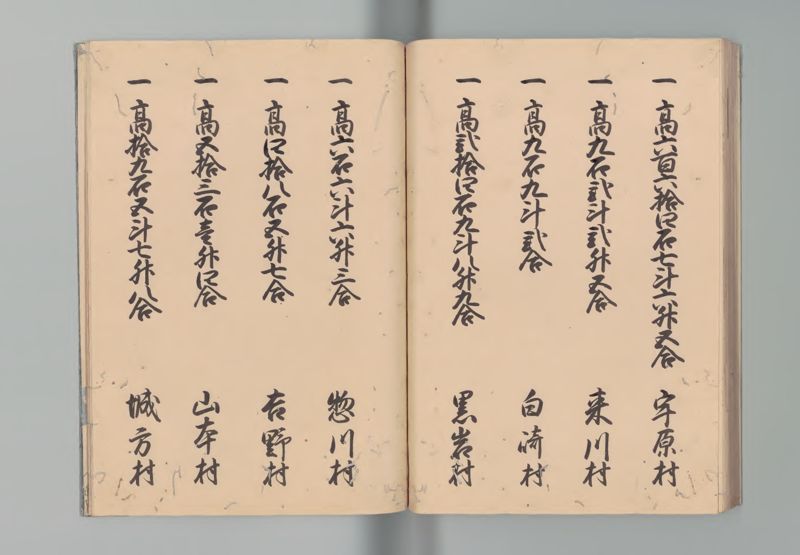 一 高六百六拾四石七斗六升五合 宇原村
一 高九石弐斗弐升五合 来川村
一 高九石九斗弐合 白崎村
一 高弐拾四石九斗八升九合 黒岩村
一 高六石六斗六升三合 惣川村
一 高四拾八石五升七合 吉野村
一 高五拾三石壱升四合 山本村
一 高拾九石五斗七升八合 城方村